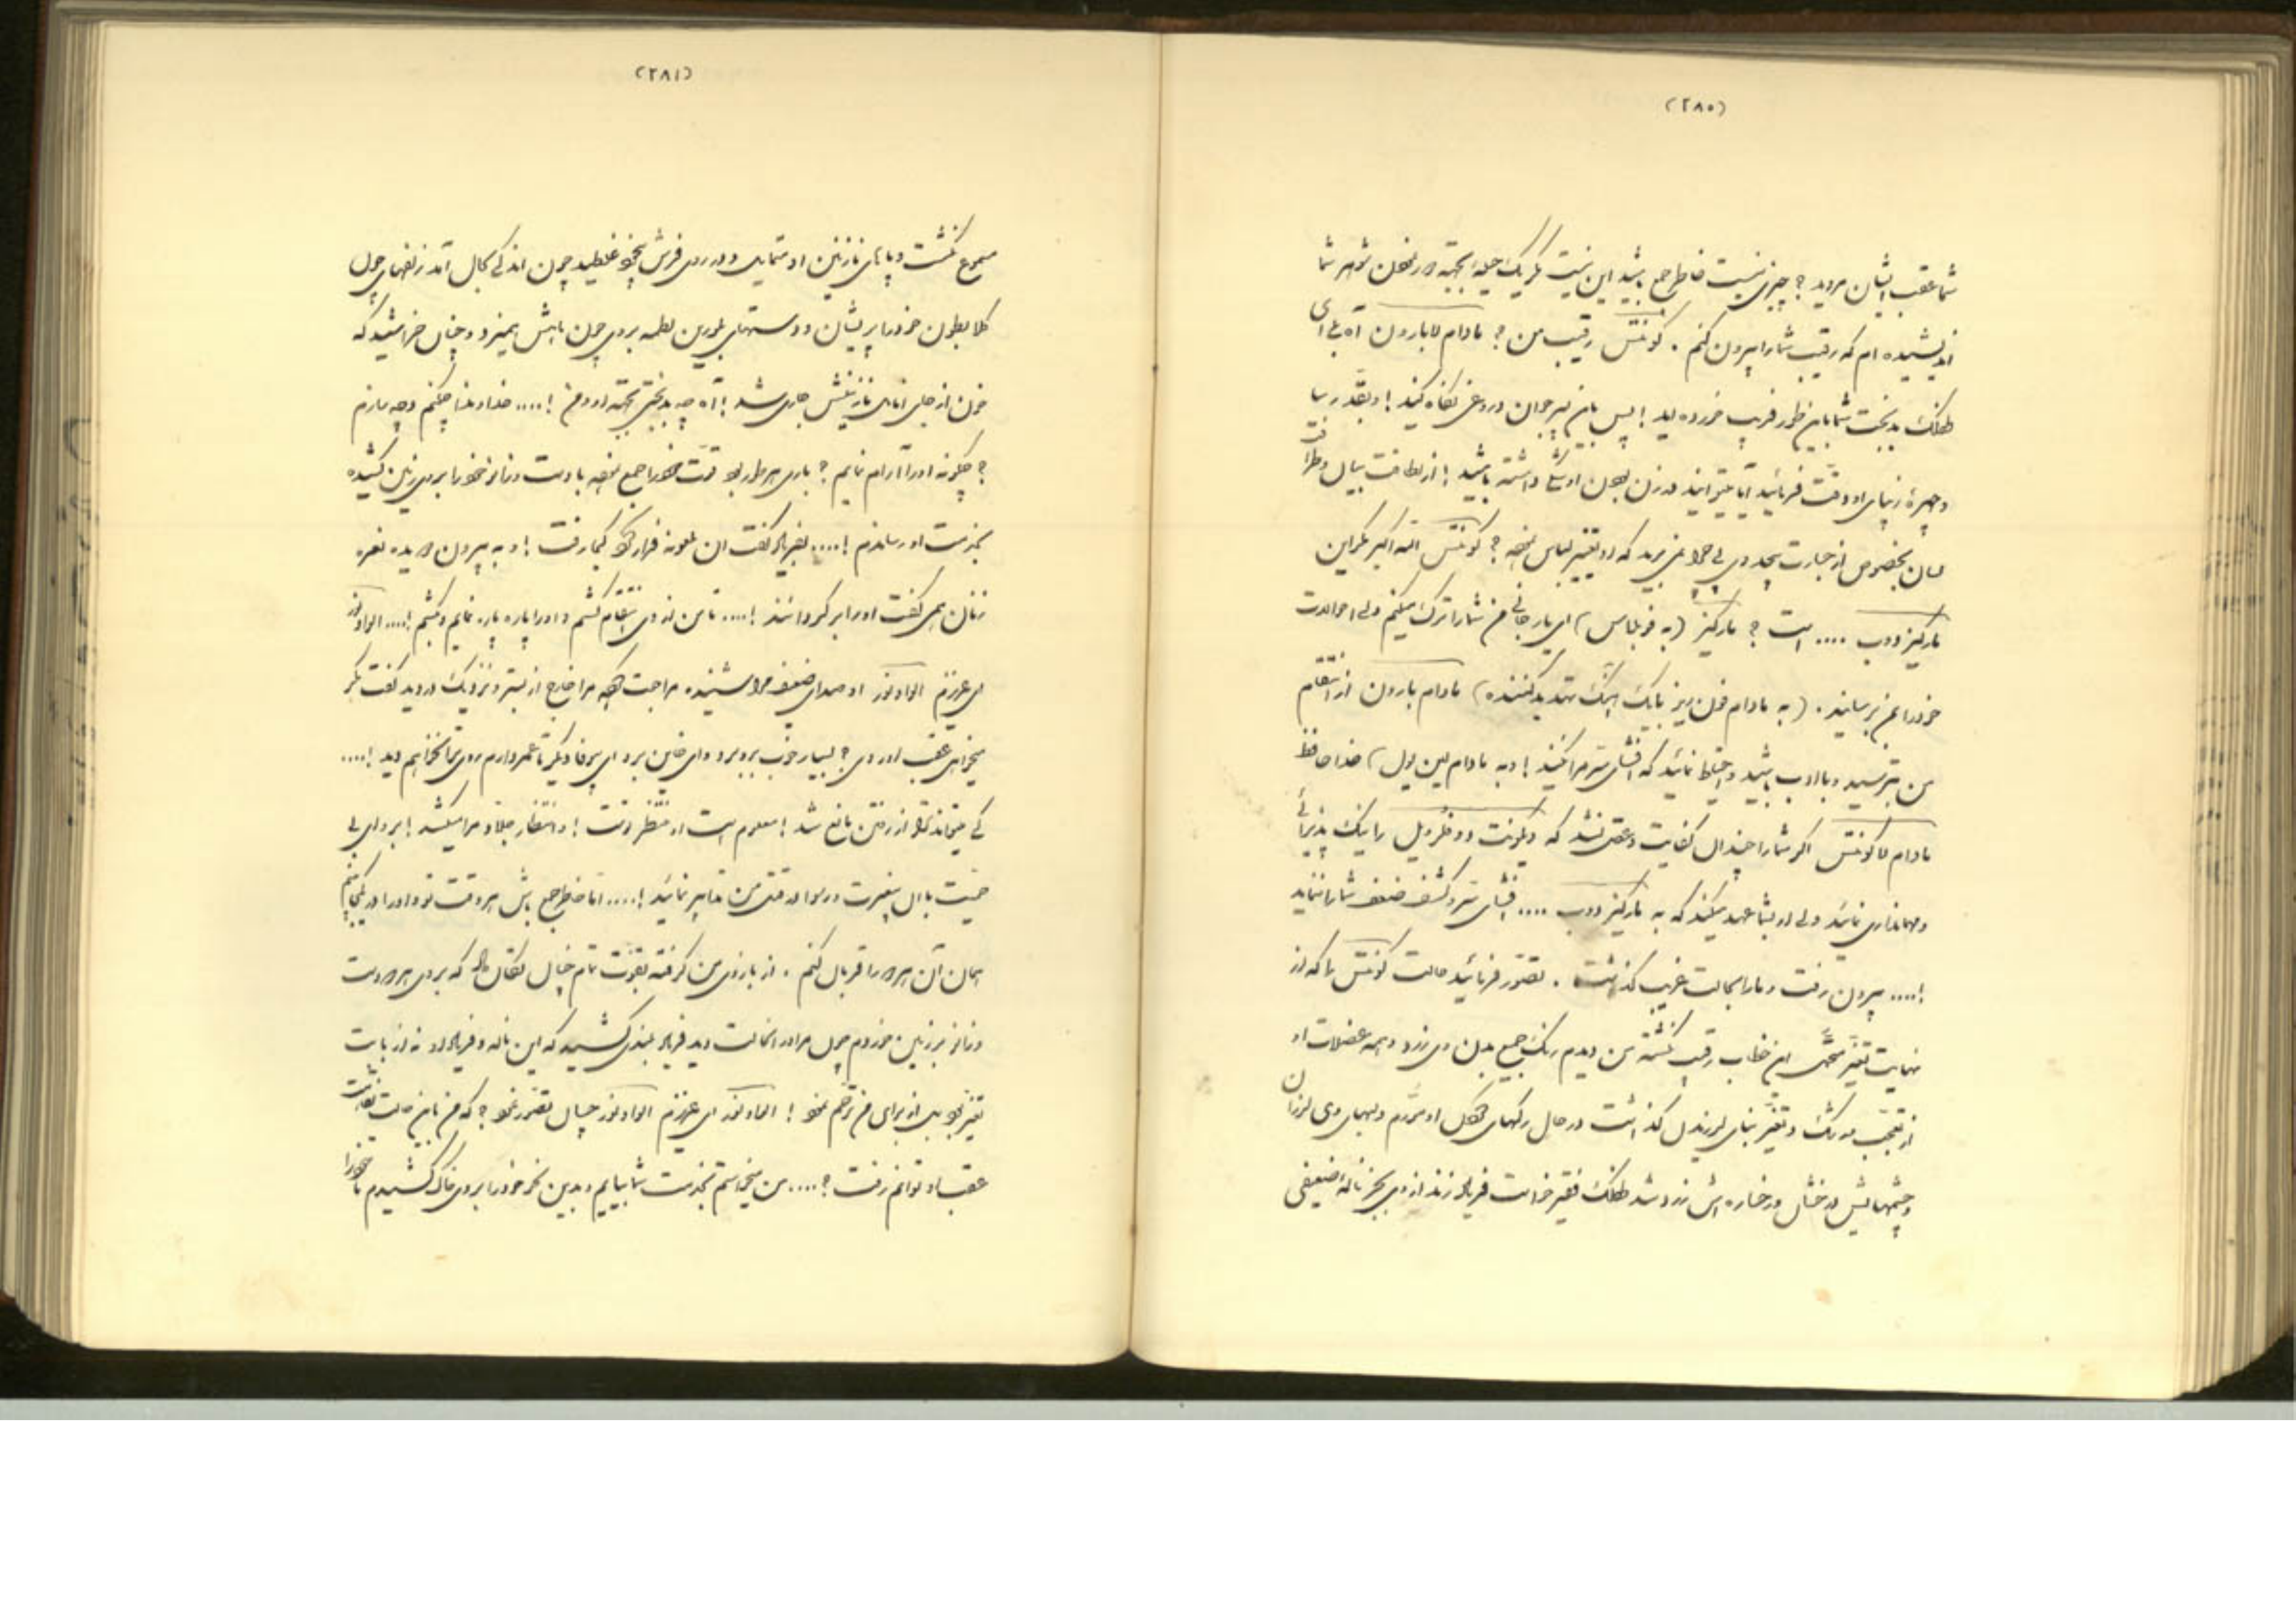 (۲۸۰)
شما عقب ایشان مروید ؟ چیزی نیست خاطر جمع باشید این نیست مگر یک حیله بجهة شوهر شما
اندیشیده ام که رقیب شما را بیرون کنم . کونتس رقیب من ؟ مادام لابارون آه بلی ای
طفلک بدبخت شما باین طور فریب خورده اید ! پس باین جوان دروغی نگاه کنید ! و بقد رسا
و چهرهٔ زیبای او دقت فرمائید آیا میتوانید در زن بودن او شک داشته باشید ! از لطافت بیان و طرافت
لسان بخصوص از جسارت بیحد وی پی نمی برید که او تغییر لباس نموده ؟ کونتس الله اکبر مگر این
مارکیز دوب .... است ؟ مارکیز (به فوبلاس) ای یار جانی من شما را ترک میکنم ولی احوالات
خود را بمن برسانید . (به مادام بیک آهنگ تهدید کننده) مادام بارون از انتقام
من بترسید و با ادب باشید و احتیاط نمائید که افشای سر مرا نکنید ! (و به مادام لین یول) خدا حافظ
مادام لاکونتس اگر شما را چندان کفایت و عقل نشد که ویکونت دو فلرویل را نیک پذیرائی
و مهمانداری نمائید ولی او بشما عهد میکند که به مارکیز دوب .... افشای سر و کشف ضعف شما را ننماید
!.... بیرون رفت و ما را بحالت غریب گذاشت . تصور فرمائید حالت کونتس را که از
نهایت تغیر این خطاب رقیب گشته من دیدم رنگ جمیع بدن وی زرد و همه عضلات او
از تعجب و رشک و تغیر بنای لرزیدن گذاشت در حال رگهای او متورم و لبهای وی لرزان
و چشمهایش درخشان و رخساره اش زرد شد طفلک فقیر خواست فریاد زند از وی بجز نالهٔ ضعیفی
(۲۸۱)
مسموع نگشت و پاهای نازنین او متمایل و در روی فرش بیخود غلطید چون اندکی بحال آمد زلفهای چون
کلابطون خود را پریشان و دستهای بلورین لطمه بروی چون ماهش همیزد و چنان خراشید که
خون از جای نازنینش جاری شد ! آه چه بدبختی بجهة او و من !.... خداوندا چکنم و چه سازم
؟ چگونه او را آرام نمایم ؟ باری هر طور بود قوت خود را جمع نموده با دست و زانو خود را بروی زمین کشیده
بخدمت او رساندم !.... بفریاد گفت آن ملعونه فرار کرد کجا رفت ! و به بیرون دویده نعره
زنان همی گفت او را برگردانند !.... تا من از وی انتقام کشم و او را پاره پاره نمایم و بکشم !.... الوادنور
ای عزیزم الوادنور او صدای ضعیف مرا شنیده مراجعت نموده مرا خارج از بستر و نزدیک در دید گفت مگر
میخواهی عقب او روی ؟ بسیار خوب برو برو ای خاین برو ای بیوفا دیگر تا عمر دارم روی ترا نخواهم دید !....
کی میتواند ترا از رفتن مانع شد ! معلوم است او منتظر تست ! و انتظار جلاد مرا میکشد ! برو ای بی
حمیت با آن بیغیرت در رسوا و قتل من تدابیر نمائید !.... اما خاطر جمع باش هر وقت تو و او را در یکجا بینم
همان آن هر دو را قربان کنم . از بازوی من گرفته بقوت تمام چنان تکان داد که بروی هر دو دست
و زانو بر زمین خوردم چون مرا در آنحالت دید فریاد بلندی کشید که این ناله و فریاد او نه از بابت
تغیر بود بل از برای من ترحم نمود ! الوادنور ای عزیزم الوادنور چنان تصور نمود ؟ که من باین حالت نقاهت
عقب او توانم رفت ؟ .... من میخواستم بخدمت شما بیایم و بدین نحو خود را بروی خاک کشیدم تا خود را